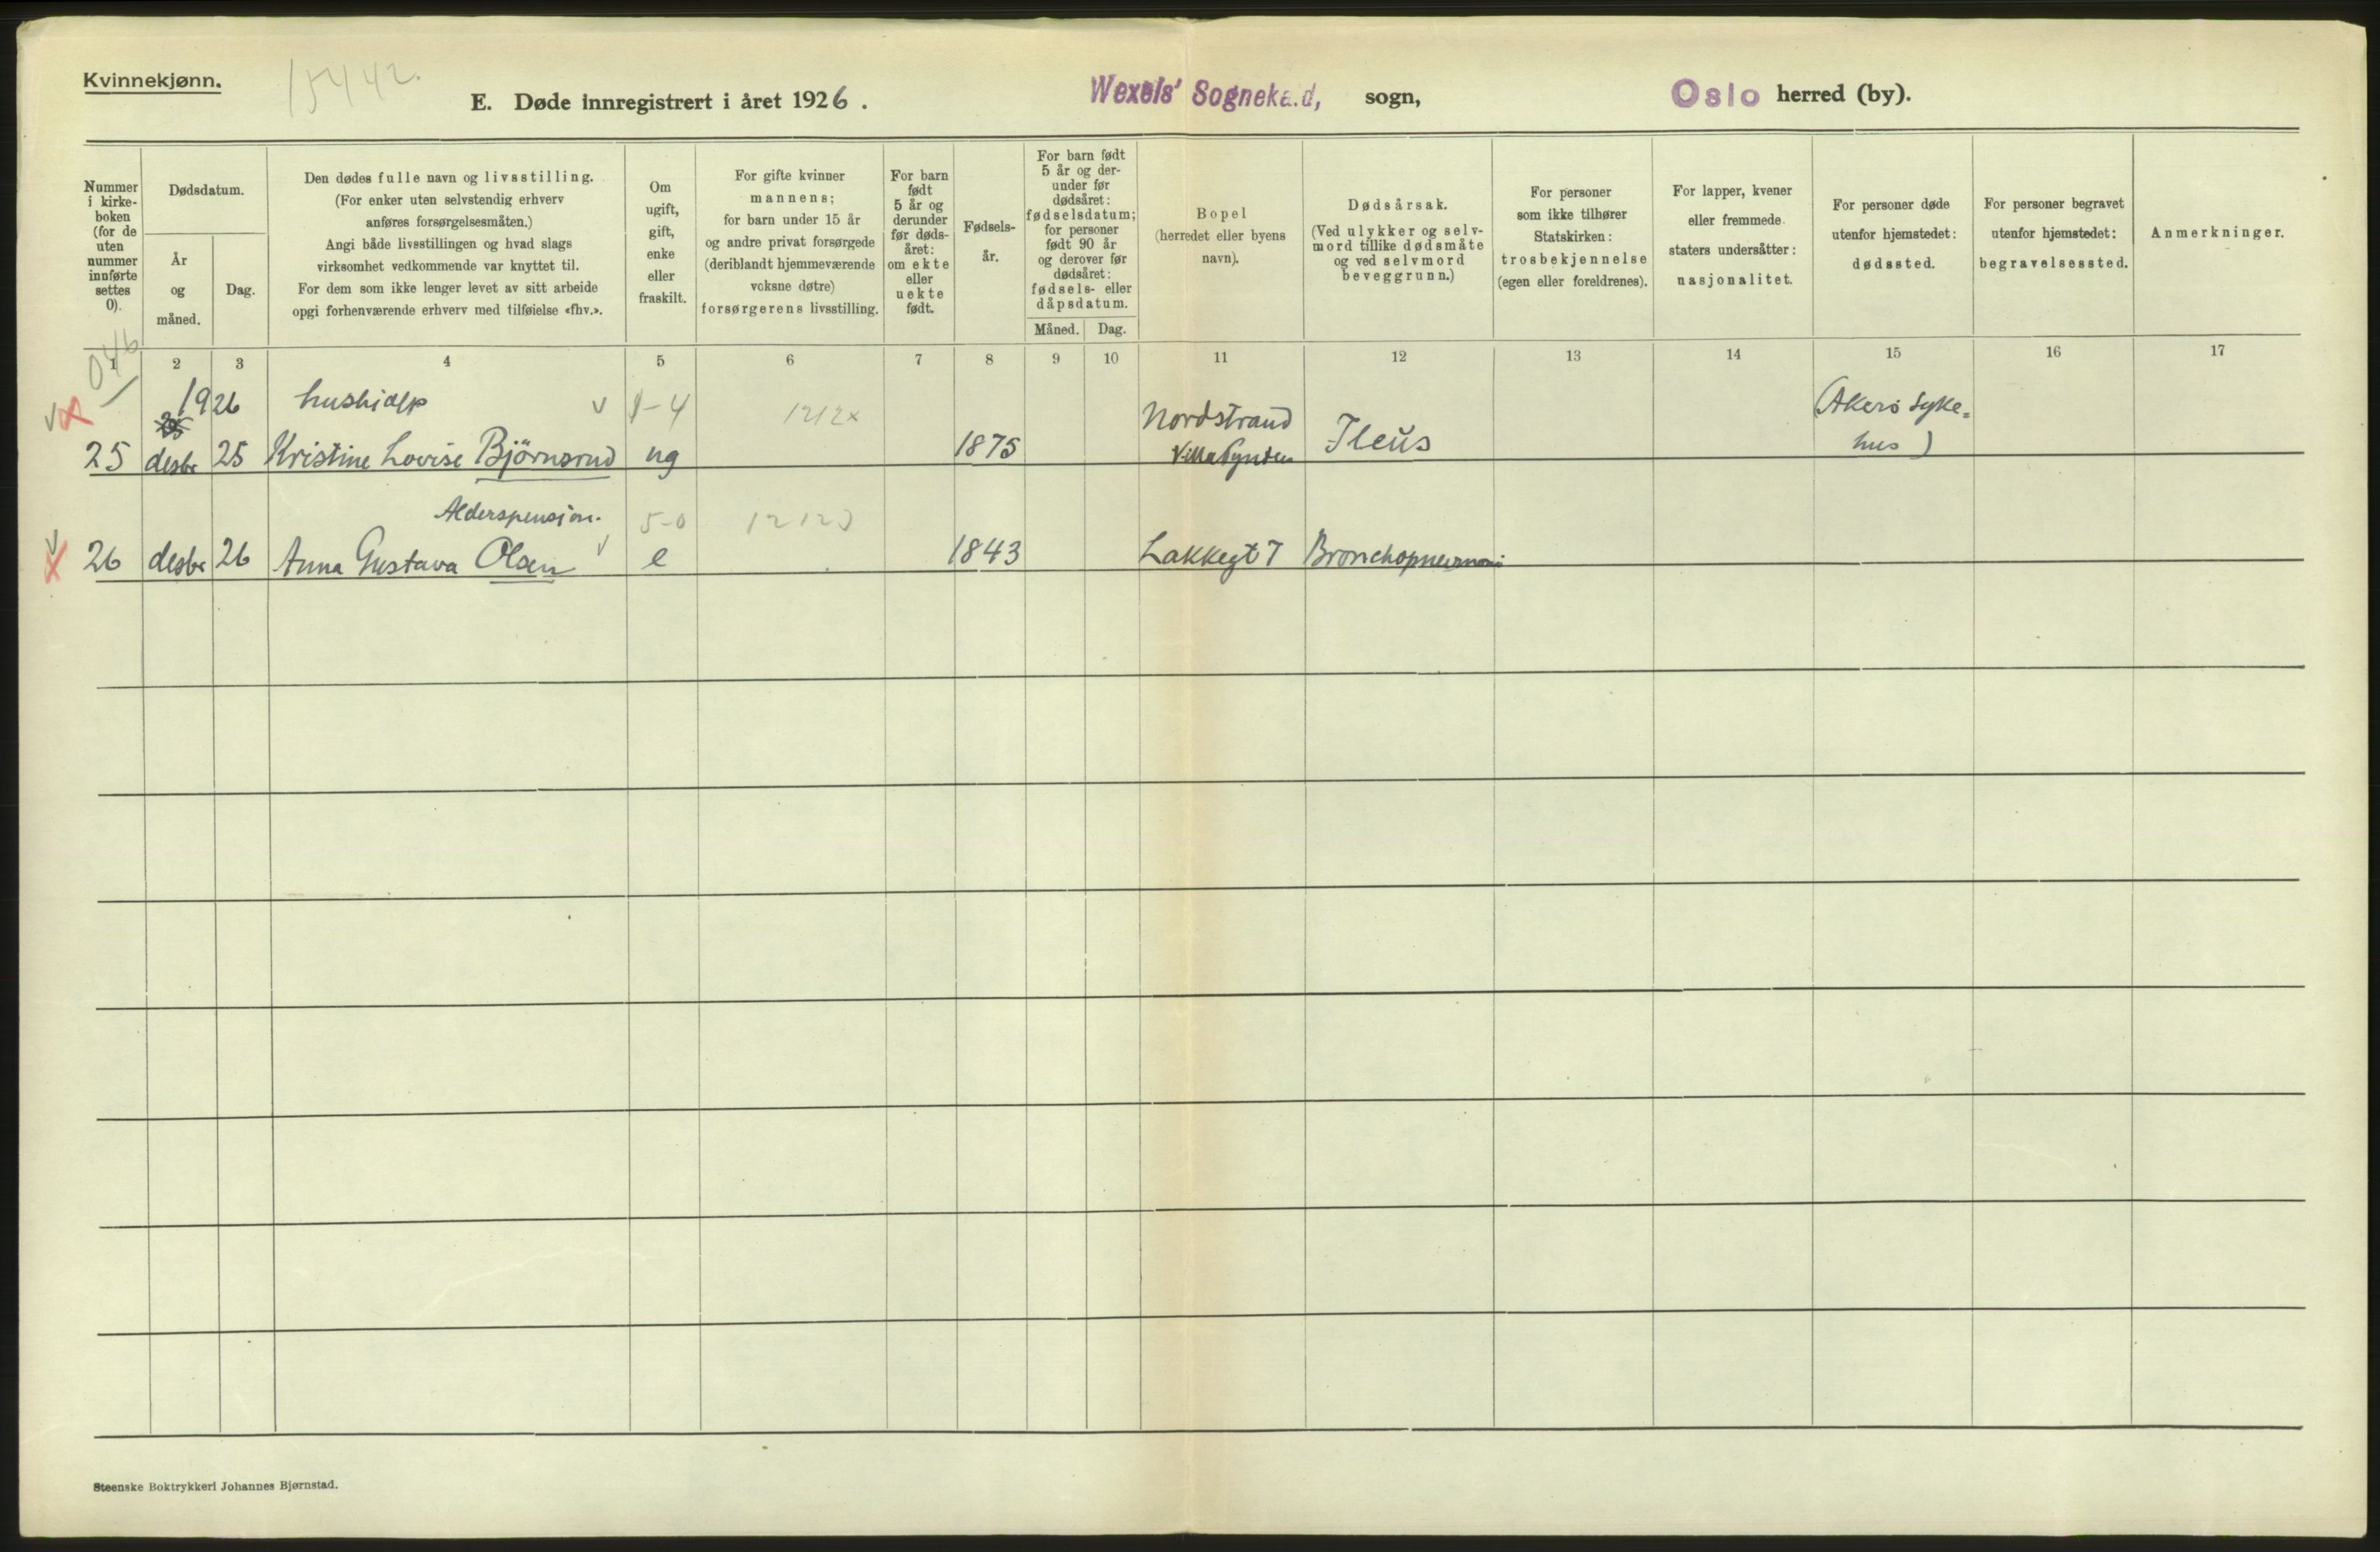 Kvinnekjønn.
15442.
E. Døde innregistrert i året 1926.
Wexels' Sogneka.d, sogn,
Oslo herred (by).
Nummer i kirke-boken (for de uten nummer innførte settes 0).
Dødsdatum.
År og måned.
Dag.
Den dødes fulle navn og livsstilling.
(For enker uten selvstendig erhverv
anføres forsørgelsesmåten.)
Angi både livsstillingen og hvad slags
virksomhet vedkommende var knyttet til.
For dem som ikke lenger levet av sitt arbeide
opgi forhenværende erhverv med tilføielse «fhv.».
Om
ugift,
gift,
enke
eller
fraskilt.
For gifte kvinner
mannens;
for barn under 15 år
og andre privat forsørgede
(deriblandt hjemmeværende
voksne døtre)
forsørgerens livsstilling.
For barn
født
5 år og
derunder
før døds-
året:
om ekte
eller
uekte
født.
Fødsels-
år.
For barn født
5 år og der-
under før
dødsåret:
fødselsdatum;
for personer
født 90 år
og derover før
dødsåret:
fødsels- eller
dåpsdatum.
Måned. Dag.
Bopel
(herredet eller byens
navn).
Dødsårsak.
(Ved ulykker og selv-
mord tillike dødsmåte
og ved selvmord
beveggrunn.)
For personer
som ikke tilhører
Statskirken:
trosbekjennelse
(egen eller foreldrenes).
For lapper, kvener
eller fremmede
staters undersåtter:
nasjonalitet.
For personer døde
utenfor hjemstedet:
dødssted.
For personer begravet
utenfor hjemstedet:
begravelsessted.
Anmerkninger.
046
1 2 3 4 5 6 7 8 9 10 11 12 13 14 15 16 17
1926 hushjelp v 1-4 1212x Nordstrand (Akers Syke=
25 desbr 25 Kristine Lovise Björnsrud ug 1875 Villa Ileus hus)
Alderspensjon. 5-0
26 desbr 26 Anna Gustava Olsen e 1843 Lakkegt 7 Bronchopneumoni
Steenske Boktrykkeri Johannes Bjørnstad.